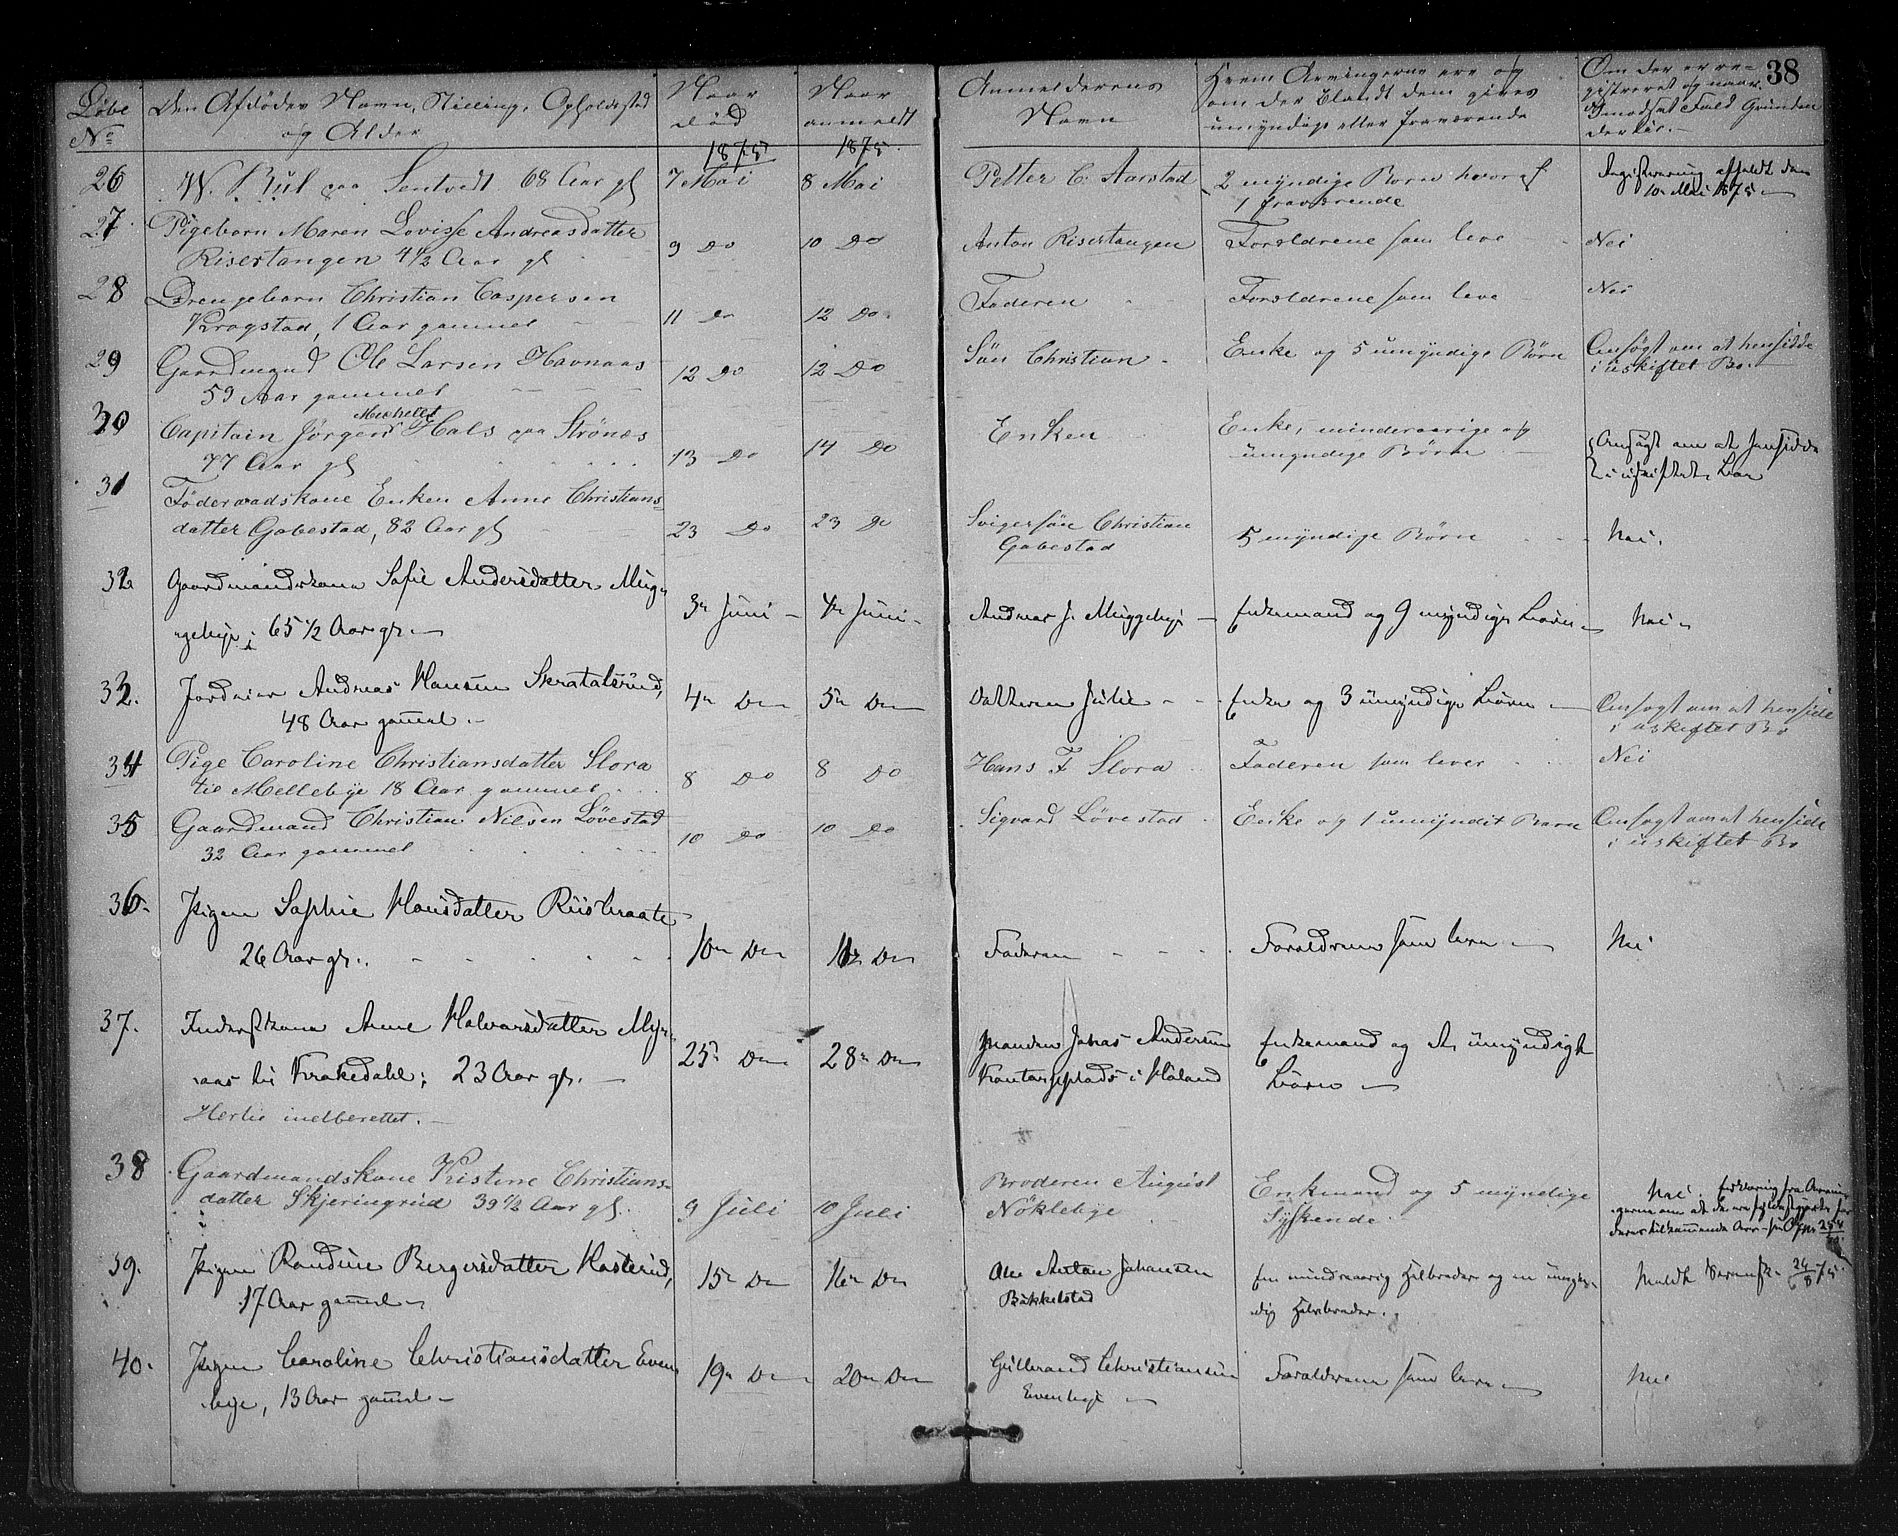 38
Løbe No
Den Afdødes Navn, Stilling, Opholdssted
og Alder
Naar død
Naar anmeldt
Anmelderens
Navn
Hvem Arvingerne ere og
om der blandt dem gives
umyndige eller fraværende
Om der er re-
gistreret og naar.
I modsat Fald Grunden
derfor.-
1875 1875.
26 W. Bul paa Sentvedt 68 Aar gl 7 Mai 8 Mai Petter C. Aarstad 2 myndige Børn hvoraf Registrering afholdt den
1 fraværende 10 Mai 1875
27 Pigebarn Maren Lovisse Andreasdatter
Risertangen 4 1/2 Aar gl 9 Do 10 Do Anton Risertangen Forældrene som leve Nei
28 Drengebarn Christian Caspersen
Krogstad, 1 Aar gammel 11 Do 12 Do. Faderen Forældrene som leve Nei
29 Gaardmand Ole Larsen Havnaas
59 Aar gammel 12 Do 12 Do Søn Christian Enke og 5 umyndige Børn Ansøgt om at hensidde
i uskiftet Bo.
30 Capitain Jørgen Michelet Hals paa Strønes
77 Aar gl 13 Do 14 Do Enken Enke, mindreaarige og
umyndige Børn Ansøgt om at hensidde
i uskiftet Boe
31 Føderaadskone Enken Anne Christians-
datter Gobestad, 82 Aar gl 23 Do 23 Do Svigersøn Christian
Gobestad 5 myndige Børn Nei.
32 Gaardmandskone Sofie Andersdatter Mug-
gebye; 65 1/2 Aar gl. 3 Juni 4 Juni Andreas J. Muggebye Enkemand og 9 myndige Børn Nei
33. Jordeier Andreas Hansen Skratalsrud,
48 Aar gammel. 4 Do 5 Do Datteren Julie Enke og 3 umyndige Børn Ansøgt om at henside
i uskiftet Bo
34 Pige Caroline Christiansdatter Slora
til Mellebye 18 Aar gammel 8 Do 8 Do Hans F Slora Faderen som lever Nei
35 Gaardmand Christian Nilsen Løvestad
32 Aar gammel 10 Do 10 Do Sigvard Løvestad Enke og 1 umyndit Barn Ansøgt om at henside
i uskiftet Bo
36. Pigen Sophie Hansdatter Riisbraate
26 Aar gl. 10 Do 11 Do Faderen Forældrene som leve Nei
37. Inderstkone Anne Halvorsdatter Myr-
aas til Krakedahl; 23 Aar gl. 25 Do 28 Do Manden Johas Andersen
Kontorpplads i Høland Enkemand og et umyndigt
Barn
Hertil indberettet.
38 Gaardmandskone Kristine Christians-
datter Skjeringrud 39 1/2 Aar gl. 9 Juli 10 Juli Broderen August
Nøklebye Enkemand og 5 myndige
Syskende. Nei, Erklæring fra Arvin-
gerne om at de ere fyldestgjorte for
deres tilkommende Arv
39. Pigen Randine Bergersdatter Kasterud,
17 Aar gammel 15 Do 16 Do Ole Anton Johansen
Bækkelstad En mindreaarig Helbroder og en umyn-
dig Halvbroder. Meldt 24/8 75
40. Pigen Caroline Christiansdatter Even-
bye, 13 Aar gammel 19 Do 20 Do Gulbrand Christiansen
Evenbye Forældrene som leve Nei